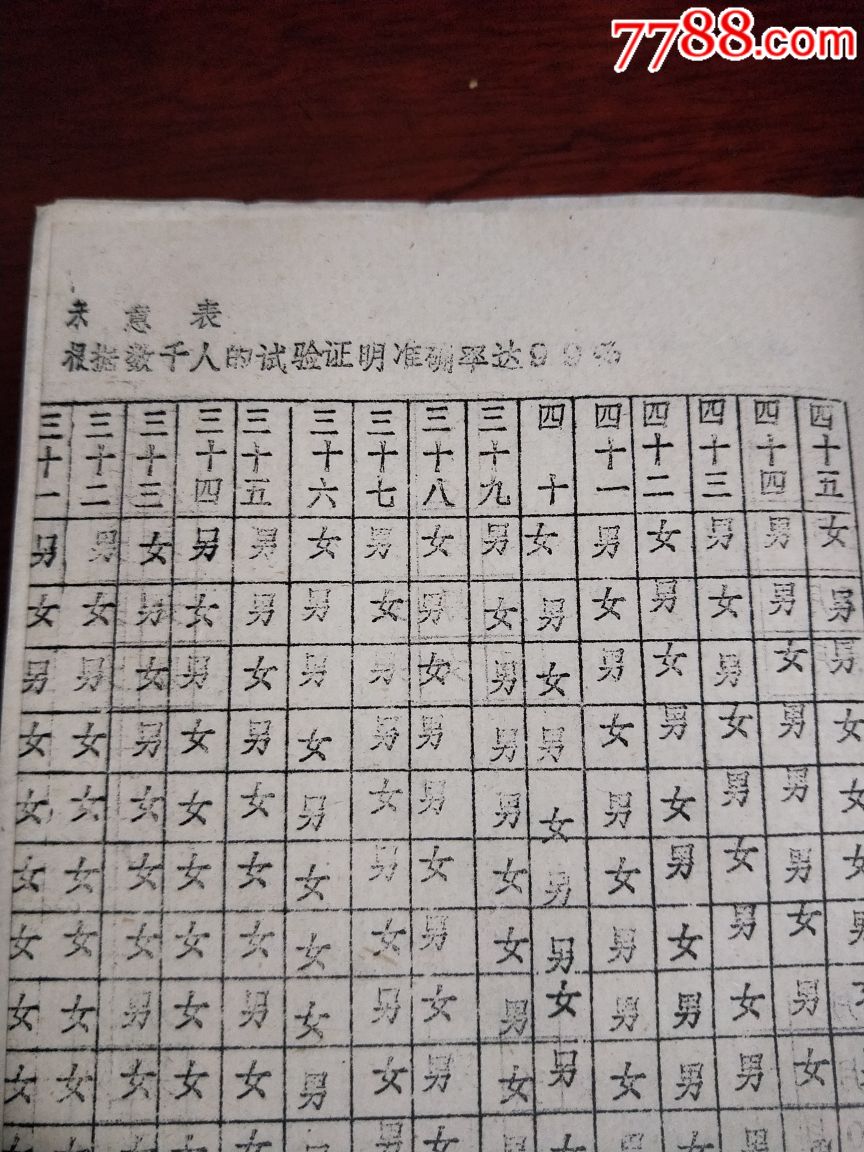 7788.com
未 意 表
根据数千人的试验证明准确率达99%
三十一 三十二 三十三 三十四 三十五 三十六 三十七 三十八 三十九 四十 四十一 四十二 四十三 四十四 四十五
男 男 女 男 男 女 男 女 男 女 男 女 男 男 女
女 女 男 女 男 男 女 男 女 男 女 男 女 男 男
男 男 女 男 女 男 男 女 男 女 男 女 男 女 男
女 女 男 女 男 女 男 男 男 男 女 男 女 男 女
女 女 女 女 女 男 女 男 男 女 男 女 男 男 女
女 女 女 女 女 女 男 女 女 男 女 男 女 男 女
女 女 女 女 女 女 女 男 女 男 男 女 男 女 男
女 女 男 女 男 女 男 女 男 女 男 男 女 男
女 女 女 女 女 男 女 男 女 男 女 男 男 女